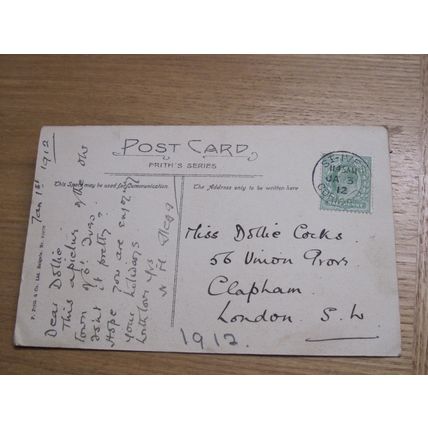 POST CARD
FRITH'S SERIES
This Space may be used for Communication.
The Address only to be written here
ST. IVES
JA 3
12
CORNWALL
Jan 1st 1912
Dear Dollie.
This a picture of the old
town of St Ives.
isnt it pretty?
Hope you are enjoying
your holidays
with love yrs
Miss Dollie Cocks.
56 Union Grove
Clapham
London S.W.
1912.